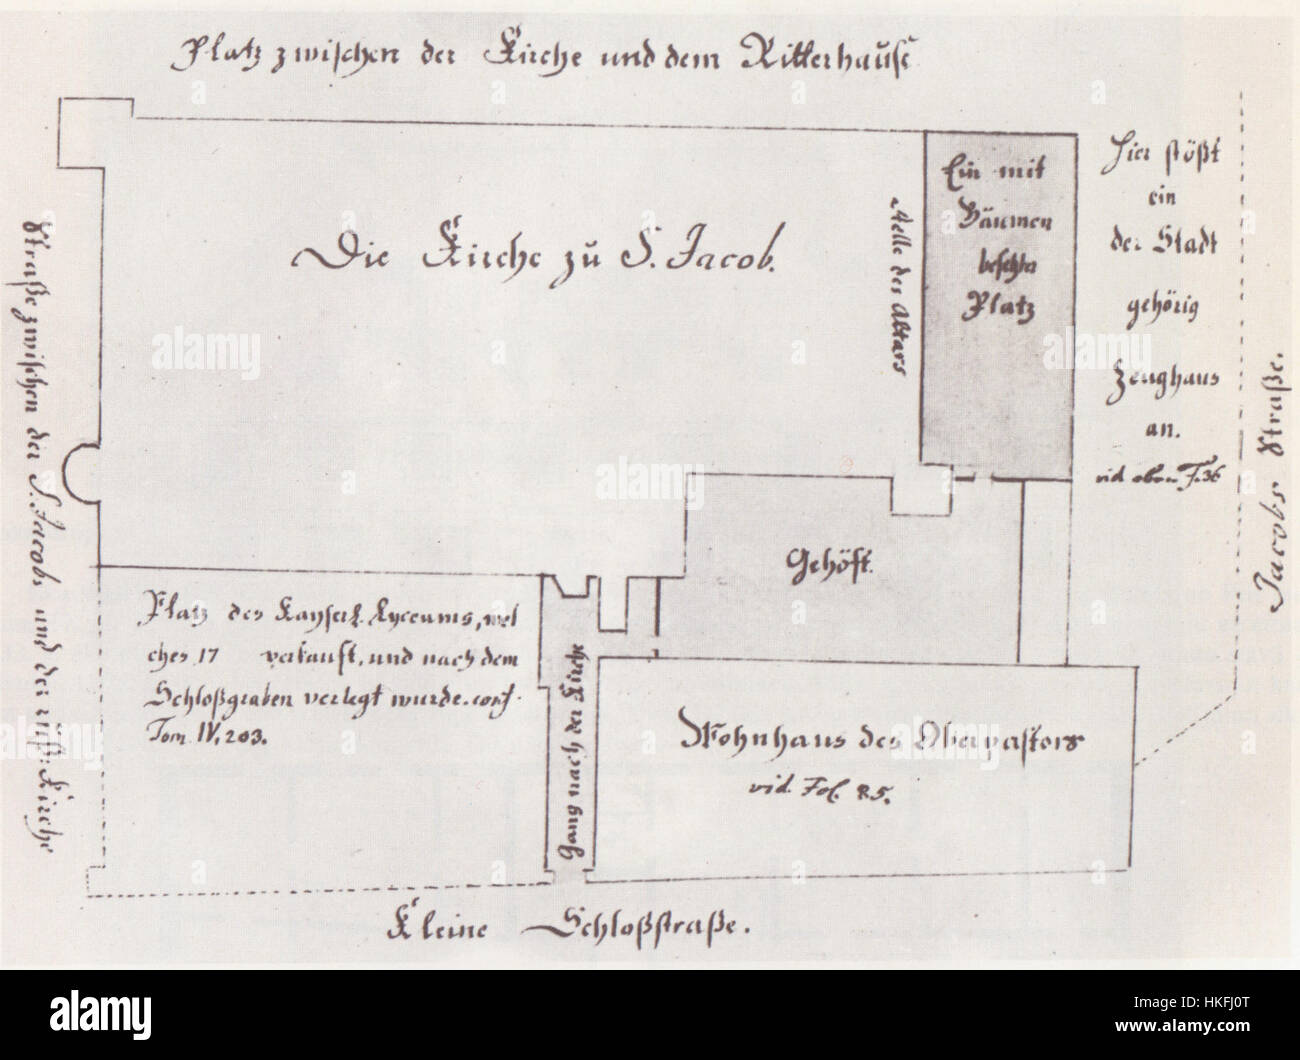 Platz zwischen der Kirche und dem Ritterhause
Die Kirche zu S. Jacob.
Stelle des Altars
Ein mit
Bäumen
besetzter
Platz
Hier stößt
ein
der Stadt
gehörig
Zeughaus
an.
vid oben F. 36
Jacobs Straße.
Straße zwischen der S. Jacobs und der russ: Kirche
Gehöft.
Platz des Kayserl. Lyceums, wel
ches 17 verkauft, und nach dem
Schloßgraben verlegt wurde. conf.
Tom IV, 203.
Gang nach der Kirche
Wohnhaus des Oberpastors
vid. Fol. 25.
Kleine Schloßstraße.
alamy
alamy
alamy
alamy
alamy
alamy
Image ID: HKFJ0T
www.alamy.com